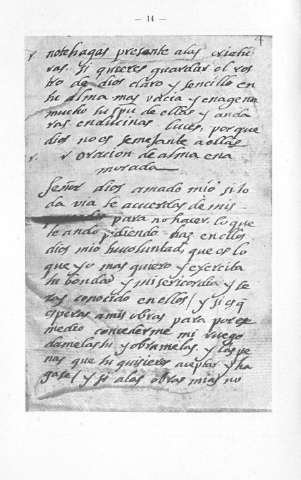 — 14 —
4
no te hagas presente a las criatu
ras. si quieres guardar el ros
tro de dios claro y sencillo en
tu alma mas vacia y enagena
mucho tu spu de ellas y anda
ras en divinas luces, porque
dios no es semejante a ellas
oracion de alma ena
morada
Señor dios amado mio si to
da via te acuerdas de mis
para no hacer lo que
te ando pidiendo haz en ellos
dios mio tu voluntad, que es lo
que yo mas quiero y exercita
tu bondad y misericordia y se
ras conocido en ellos / y si es q
esperas a mis obras para por ese
medio concederme mi ruego
damelas tu y obramelas, y las pe
nas que tu quisieres aceptar y ha
gase / y si a las obras mias no